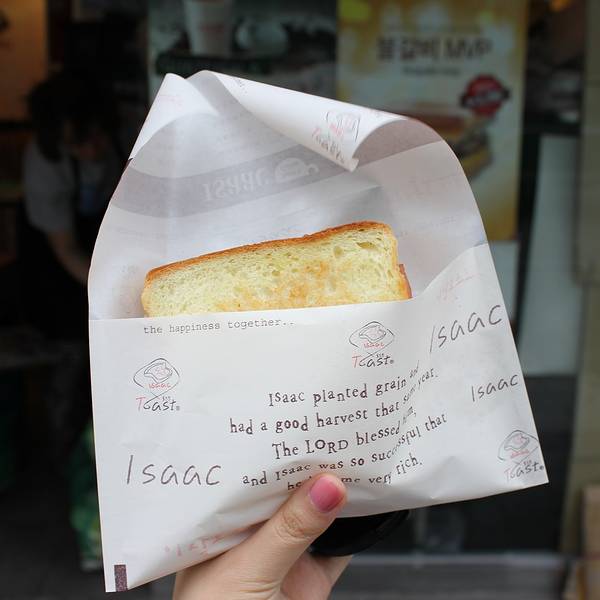 불갈비 MVP
Isaac
the happiness together..
Isaac
Toast
Isaac
Toast
Isaac
Isaac planted grain and
had a good harvest that same year.
The LORD blessed him,
and Isaac was so successful that
he became very rich.
Isaac
Isaac
Toast
Isaac